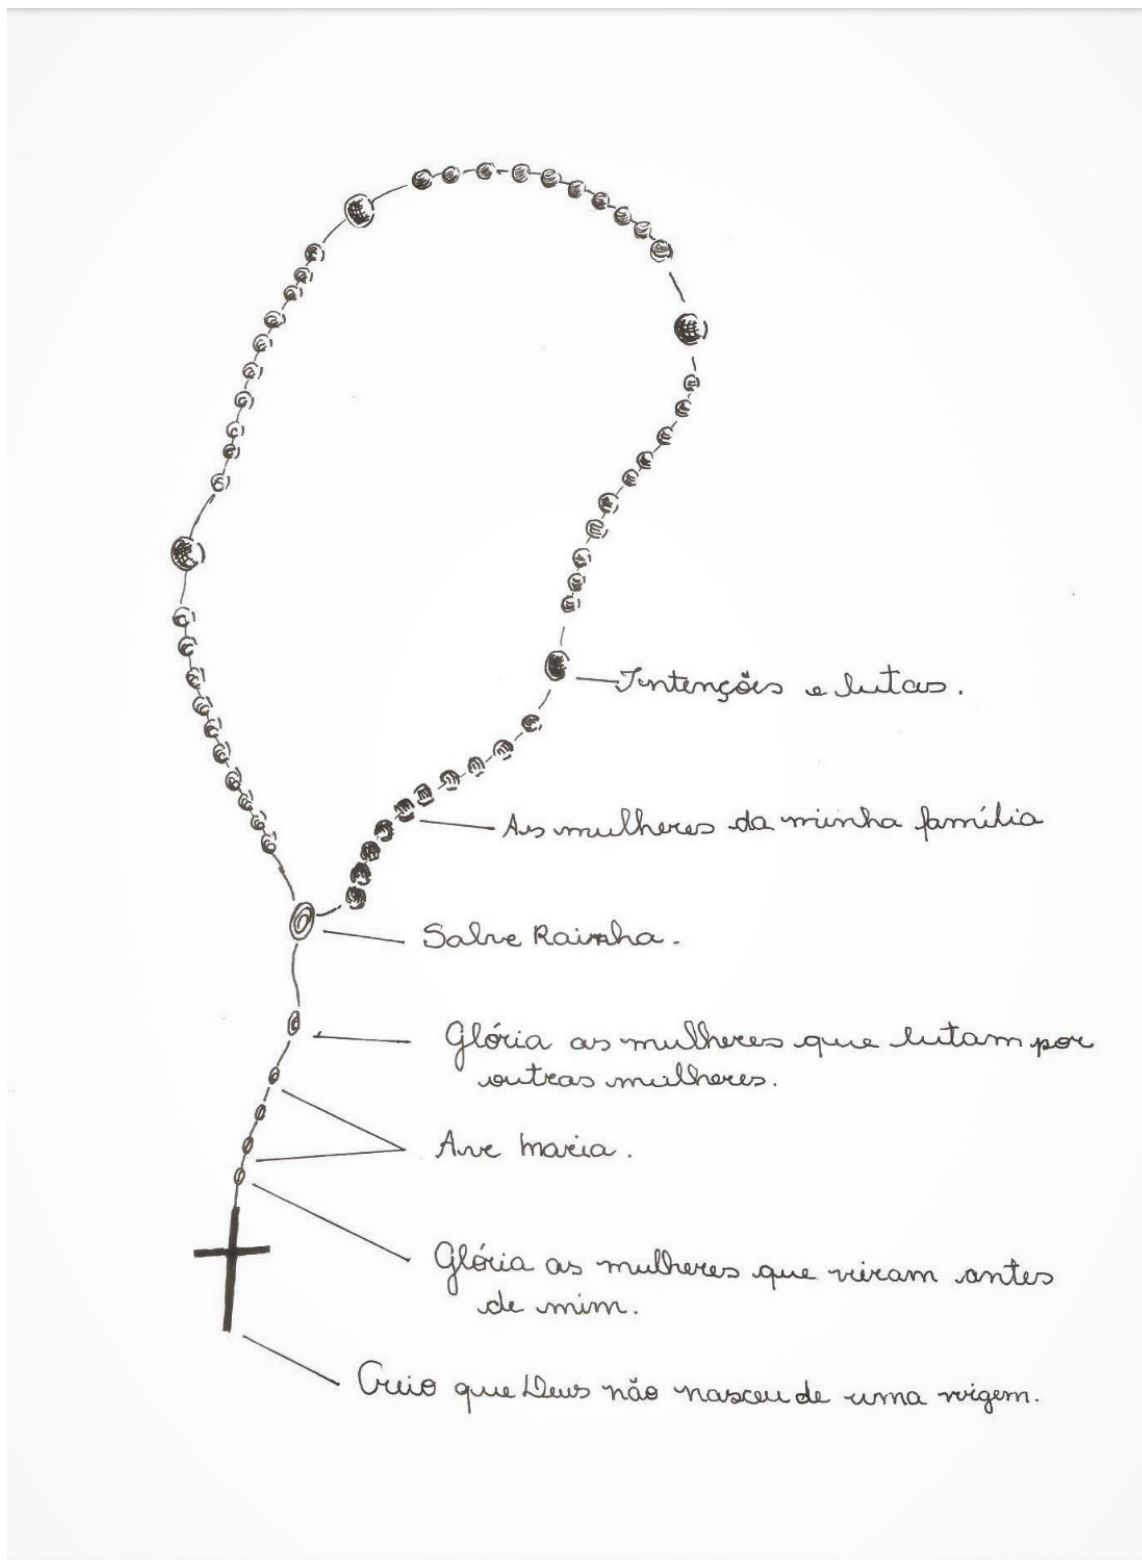 Intenções e lutas.
As mulheres da minha família
Salve Rainha.
Glória as mulheres que lutam por
outras mulheres.
Ave Maria.
Glória as mulheres que viram antes
de mim.
Creio que Deus não nasceu de uma virgem.